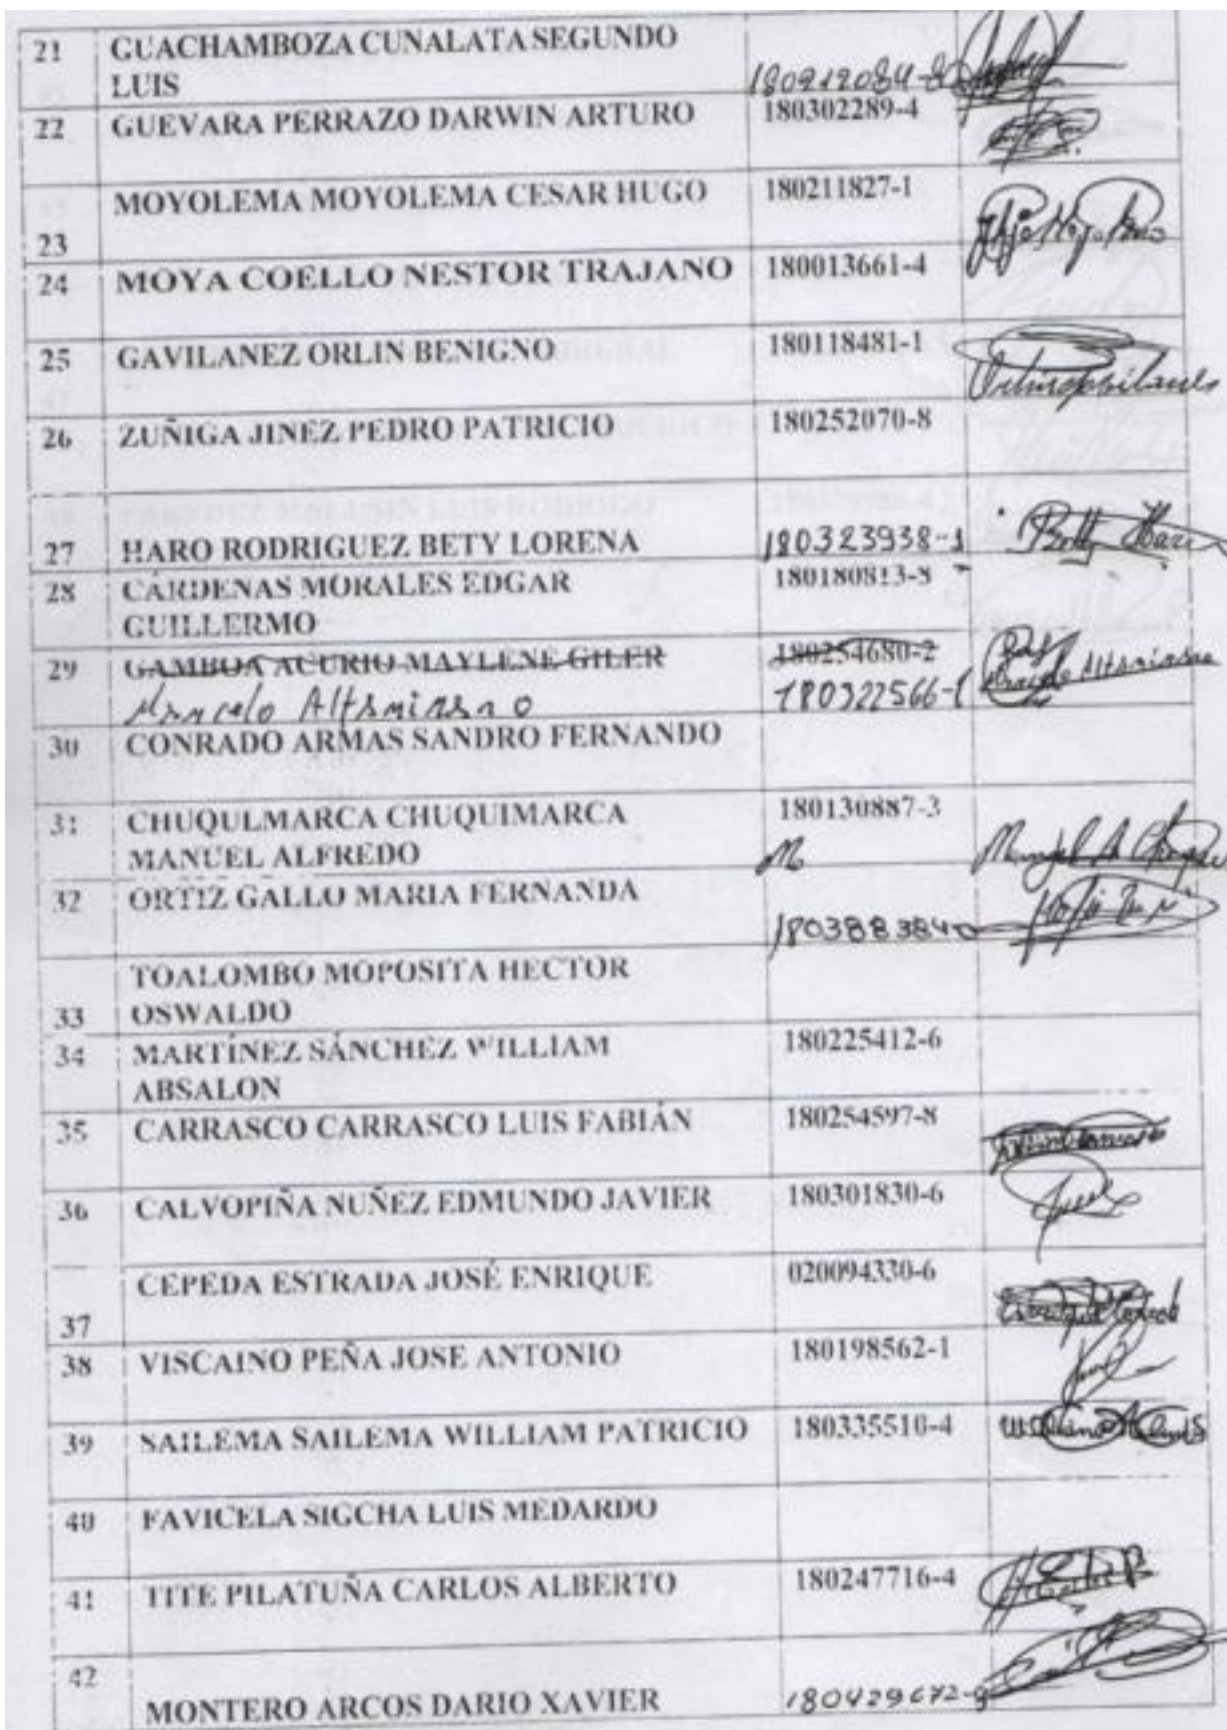 21 GUACHAMBOZA CUNALATA SEGUNDO
LUIS 180212084-8
22 GUEVARA PERRAZO DARWIN ARTURO 180302289-4
MOYOLEMA MOYOLEMA CESAR HUGO 180211827-1
23
24 MOYA COELLO NESTOR TRAJANO 180013661-4
25 GAVILANEZ ORLIN BENIGNO 180118481-1
26 ZUÑIGA JINEZ PEDRO PATRICIO 180252070-8
27 HARO RODRIGUEZ BETY LORENA 180323938-1 Betty Haro
28 CÁRDENAS MORALES EDGAR 180180813-8
GUILLERMO
29 GAMBOA ACURIO MAYLENE GILER 180254680-2
Marcelo Altamirano 180322566-1 Marcelo Altamirano
30 CONRADO ARMAS SANDRO FERNANDO
31 CHUQULMARCA CHUQUIMARCA 180130887-3
MANUEL ALFREDO M Manuel A
32 ORTIZ GALLO MARIA FERNANDA
180388384-0
TOALOMBO MOPOSITA HECTOR
33 OSWALDO
34 MARTÍNEZ SÁNCHEZ WILLIAM 180225412-6
ABSALON
35 CARRASCO CARRASCO LUIS FABIÁN 180254597-8
36 CALVOPIÑA NUÑEZ EDMUNDO JAVIER 180301830-6
CEPEDA ESTRADA JOSÉ ENRIQUE 020094330-6
37
38 VISCAINO PEÑA JOSE ANTONIO 180198562-1
39 SAILEMA SAILEMA WILLIAM PATRICIO 180335510-4
40 FAVICELA SIGCHA LUIS MEDARDO
41 TITE PILATUÑA CARLOS ALBERTO 180247716-4
42
MONTERO ARCOS DARIO XAVIER 180429672-9